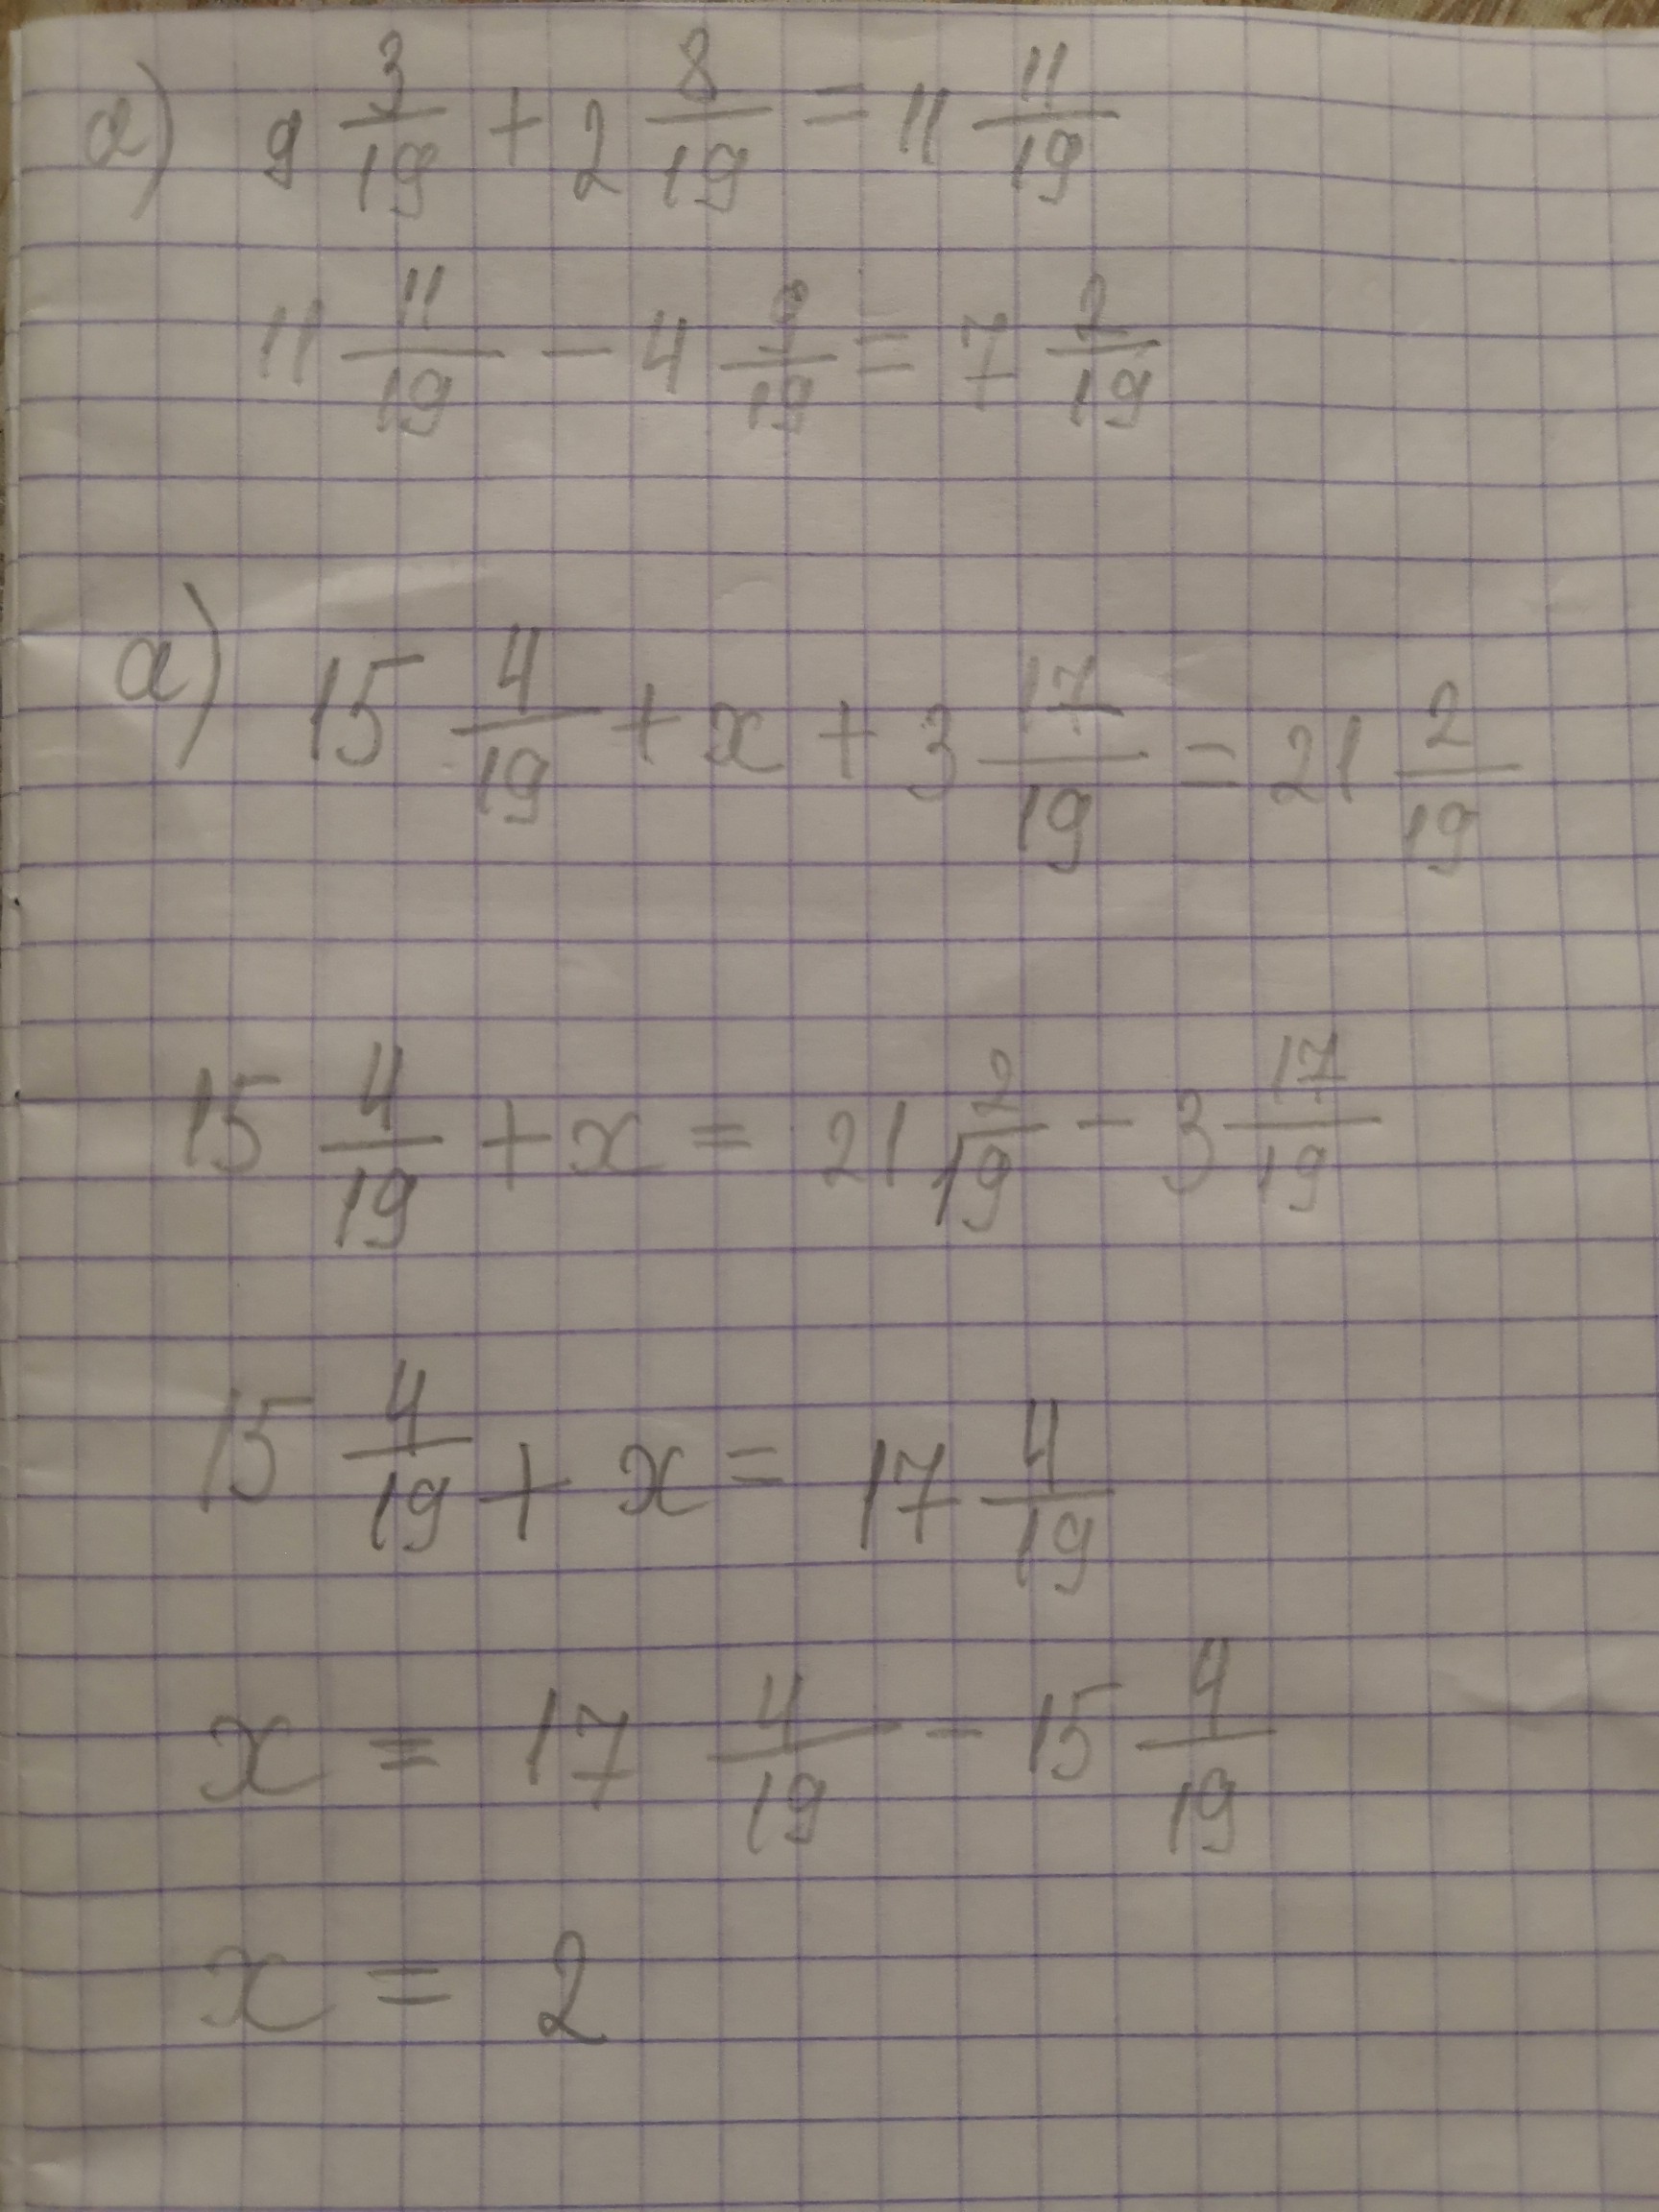 а) 9 3/19 + 2 8/19 = 11 11/19
11 11/19 - 4 9/19 = 7 2/19
а) 15 4/19 + x + 3 17/19 = 21 2/19
15 4/19 + x = 21 2/19 - 3 17/19
15 4/19 + x = 17 4/19
x = 17 4/19 - 15 4/19
x = 2